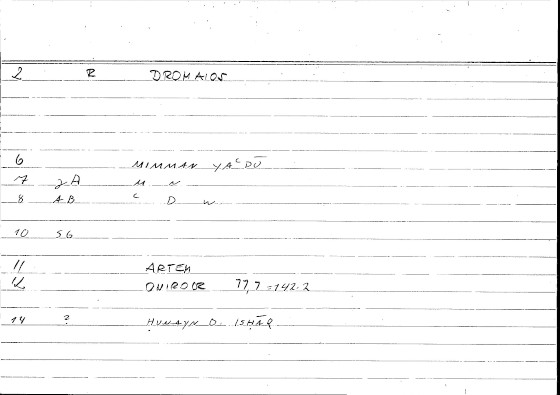 2 R DROMAIOS
6 MIMMAN YAᶜDŪ
7 2A M N
8 AB ᶜ D W
10 SG
11 ARTEM
12 ONIROCR 77,7 = 142.2
14 ? ḤUNAYN B. ISḤĀQ